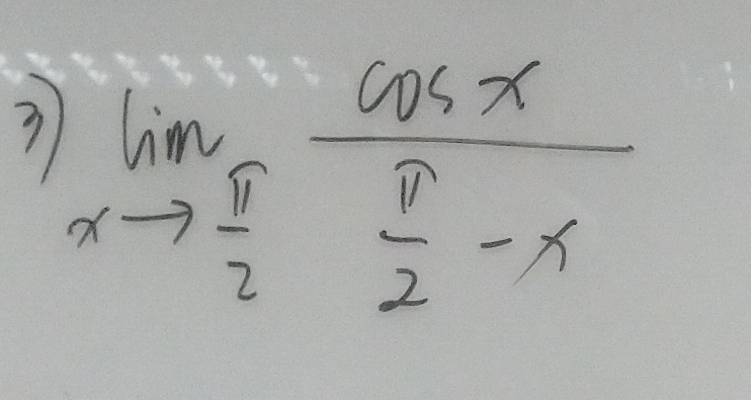 3) lim x→π/2 cos x / (π/2 - x)